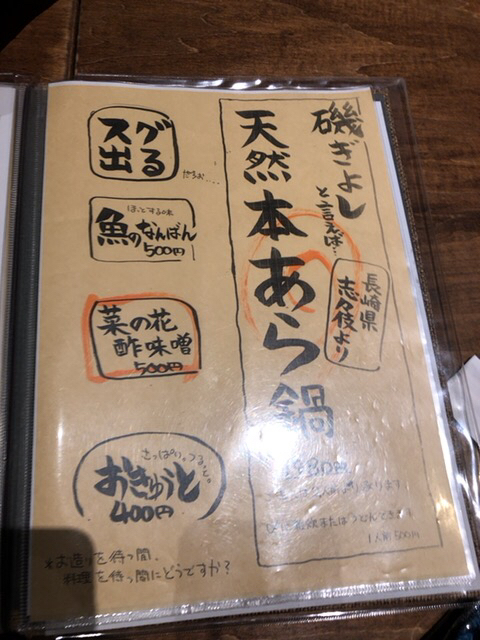 磯ぎよし
と言えば…
天然本あら鍋
長崎県
志々伎より
1人前500円
スグ
出る
ほっとする味
魚のなんばん
500円
菜の花
酢味噌
500円
さっぱり、つるっと。
おきゅうと
400円
*お造りを待つ間、
料理を待つ間にどうですか?